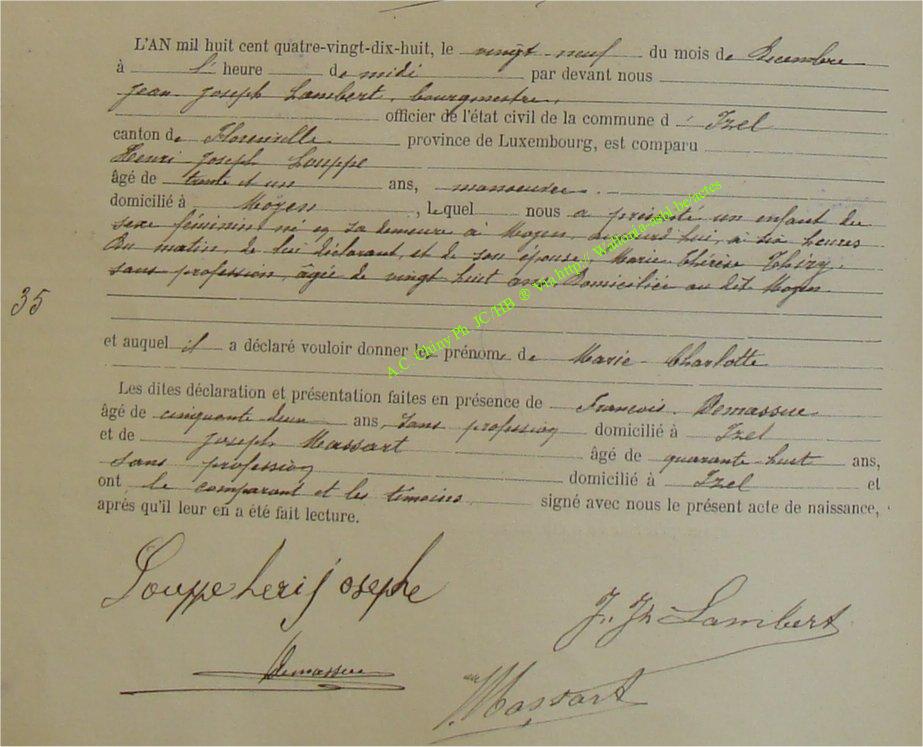 L'AN mil huit cent quatre-vingt-dix-huit, le vingt neuf du mois de Decembre
à l' heure de midi par devant nous
Jean Joseph Lambert, bourgmestre,
officier de l'état civil de la commune d' Izel
canton de Florenville province de Luxembourg, est comparu
Henri Joseph Louppe
âgé de trente et un ans, manoeuvre
domicilié à Moyen, lequel nous a présenté un enfant du
sexe féminin né en sa demeure à Moyen, aujourd'hui, à six heures
du matin, de lui déclarant, et de son épouse Marie Thérèse Thiry,
sans profession, âgée de vingt huit ans domiciliée au dit Moyen
35
et auquel il a déclaré vouloir donner les prénoms de Marie Charlotte
Les dites déclaration et présentation faites en présence de François Demassue
âgé de cinquante deux ans, sans profession domicilié à Izel
et de Joseph Massart âgé de quarante huit ans,
sans profession domicilié à Izel et
ont le comparant et les témoins signé avec nous le présent acte de naissance,
après qu'il leur en a été fait lecture.
Louppe heri josephe
J. Jh Lambert
Demassue
Massart
A.C Chiny Ph JC/HB ® Via http:// Wallonia-asbl.be/actes